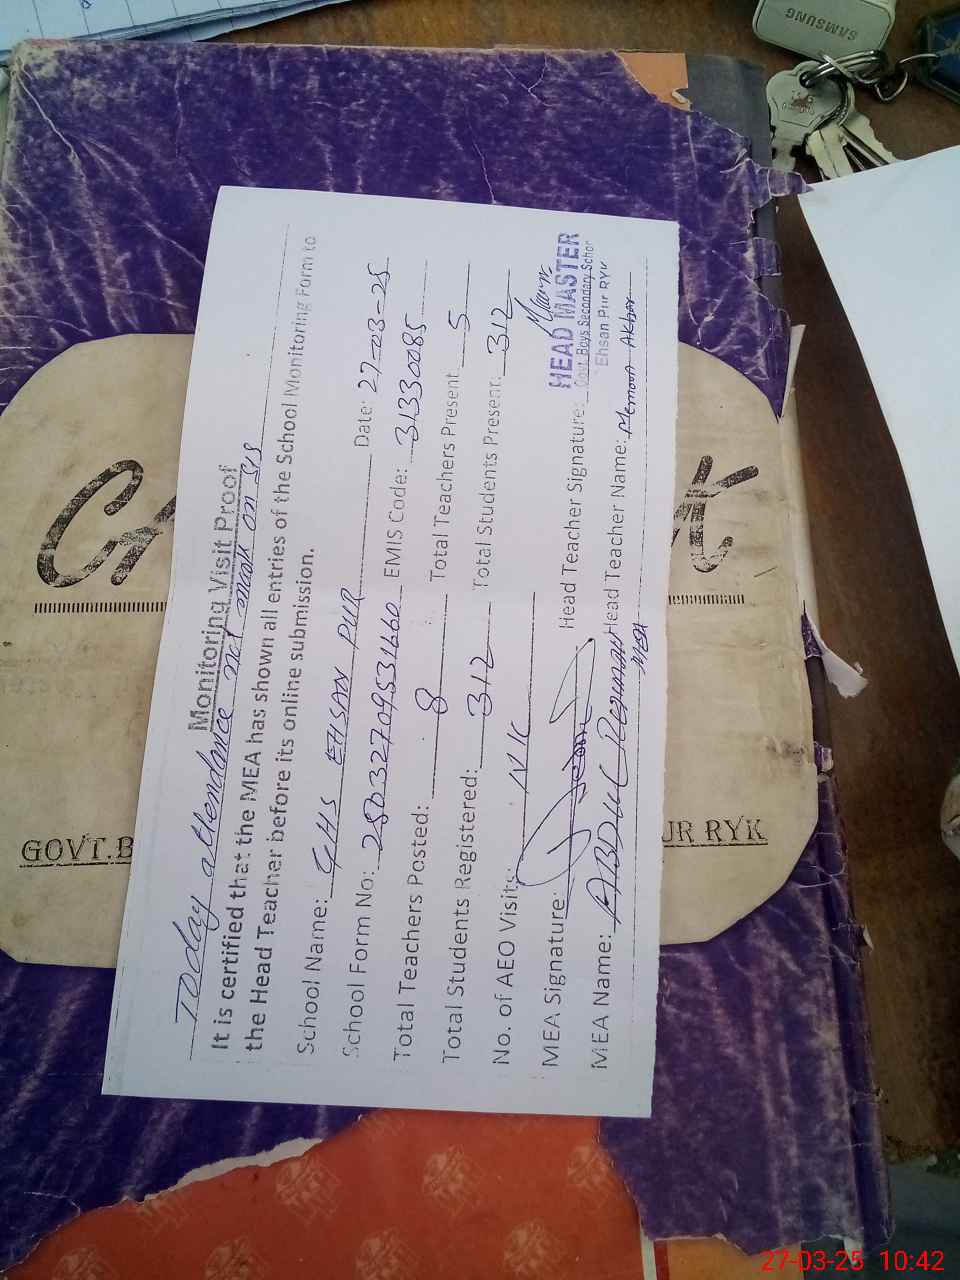 Monitoring Visit Proof
Today attendance not mark on SIS
It is certified that the MEA has shown all entries of the School Monitoring Form to
the Head Teacher before its online submission.
School Name: GHS EHSAN PUR Date: 27-03-25
School Form No: EMIS Code: 31330085
Total Teachers Posted: 8 Total Teachers Present 5
Total Students Registered: 312 Total Students Present: 312
No. of AEO Visits:
MEA Signature: Head Teacher Signature:
HEAD MASTER
Govt. Boys Secondary School
Ehsan Pur RYK
MEA Name: ABDUL Rehman MEA Head Teacher Name: Memoon Akhtar
GOVT.B
UR RYK
SAMSUNG
27-03-25 10:42